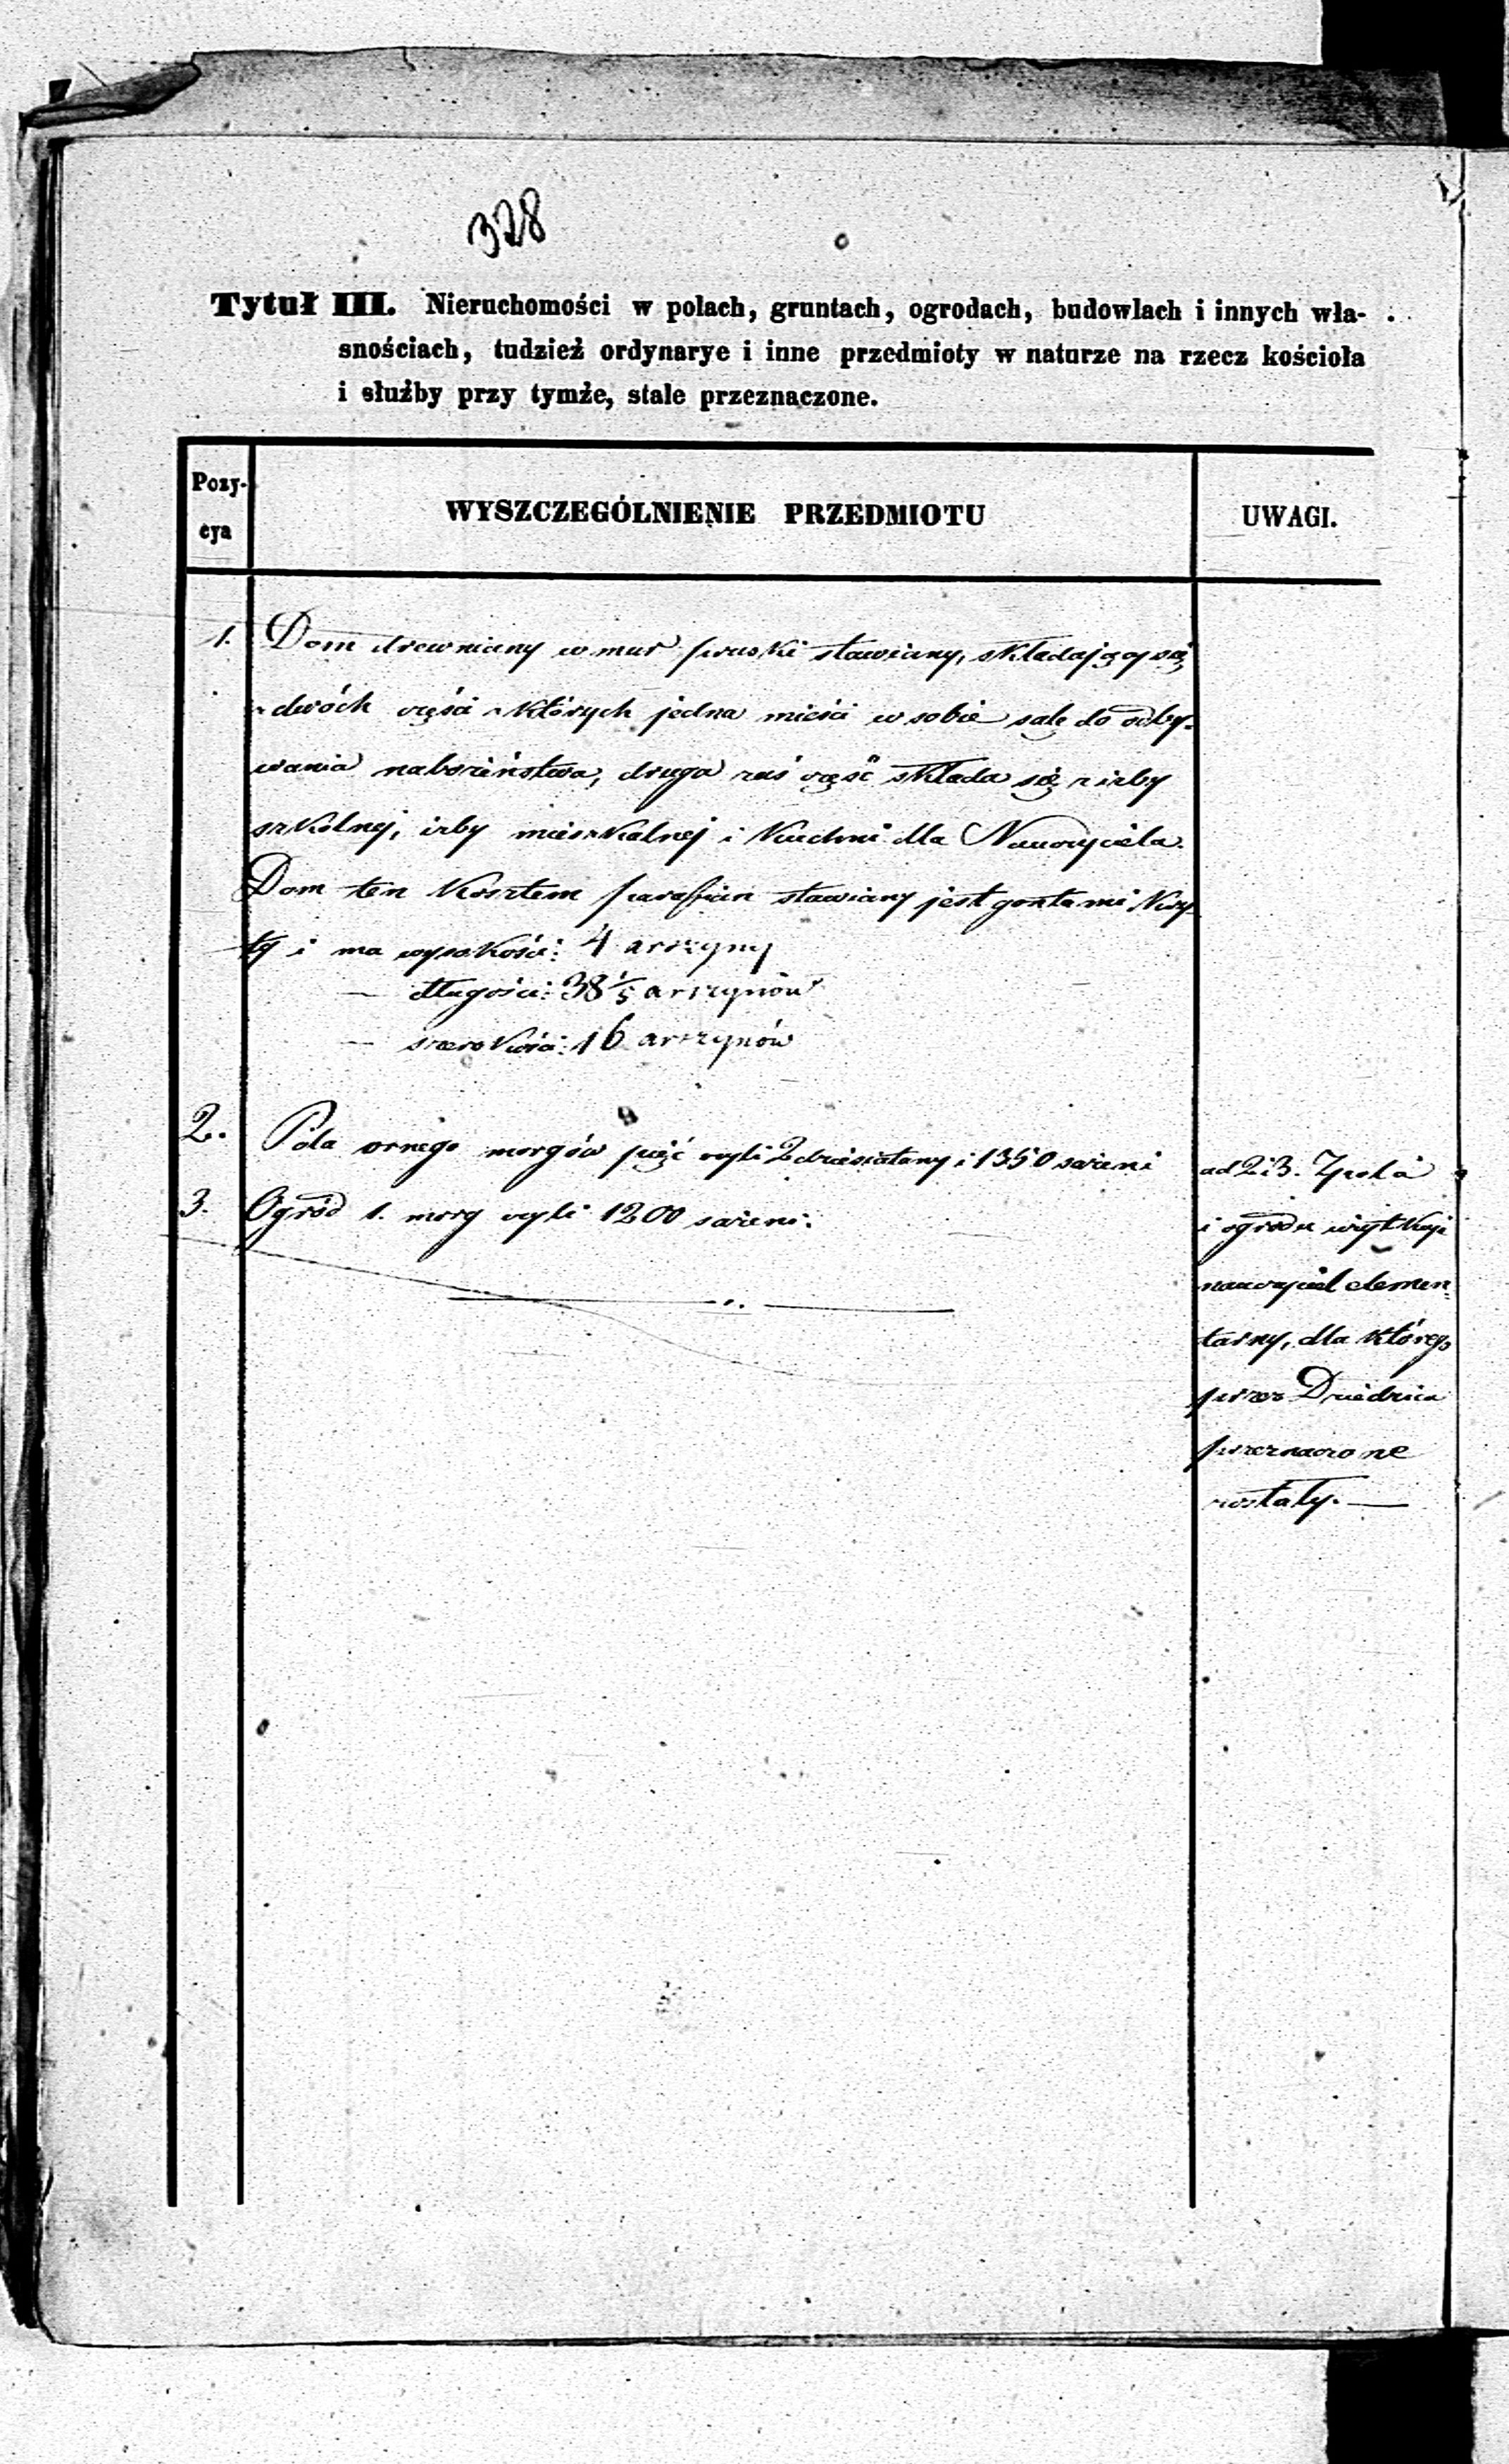 328
Tytuł III. Nieruchomości w polach, gruntach, ogrodach, budowlach i innych wła-
snościach, tudzież ordynarye i inne przedmioty w naturze na rzecz kościoła
i służby przy tymże, stale przeznaczone.
Pozy-
cya
WYSZCZEGÓLNIENIE PRZEDMIOTU
UWAGI.
1. Dom drewniany w mur pruski stawiany, składający się
z dwóch części z których jedna mieści w sobie salę do odby-
wania nabożeństwa, druga zaś część składa się z izby
szkolnej, izby mieszkalnej i kuchni dla Nauczyciela.
Dom ten kosztem parafian stawiany jest gontami kry-
ty i ma wysokości: 4 arszyny
— długości: 38 1/5 arszynów
— szerokości: 16 arszynów
2. Pola ornego morgów pięć czyli 2 dziesiatany i 1350 sażeni
3. Ogród 1. morg czyli 1200 sażeni.
ad 2 i 3. Z pola
i ogrodu użytkuje
nauczyciel elemen-
tarny, dla którego
przez Dziedzica
przeznaczone
zostały. —